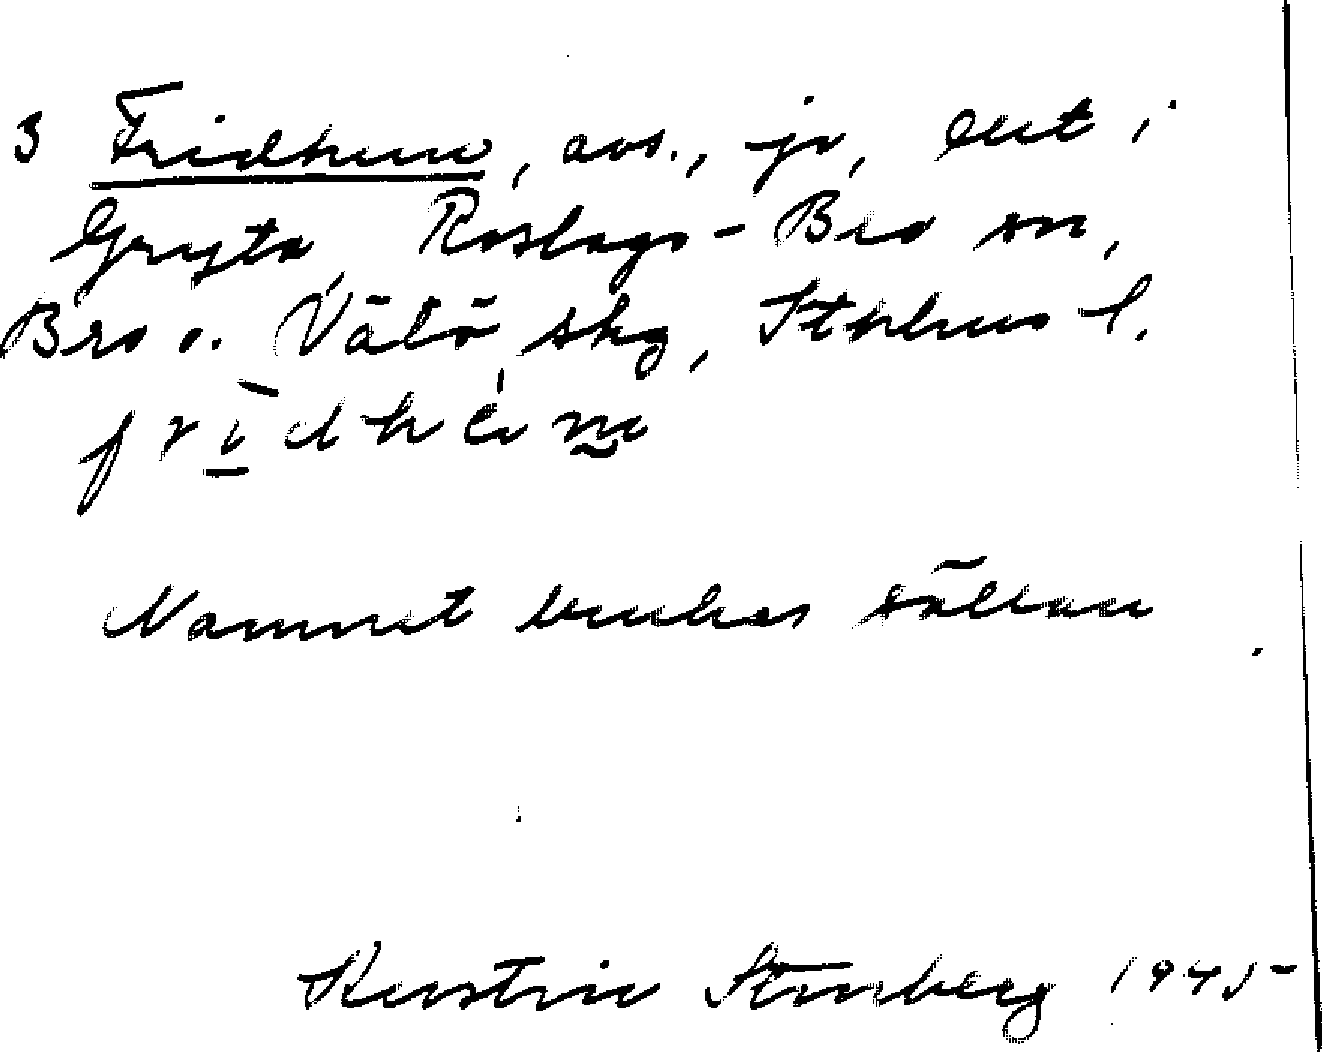 3 Fridhem, avs., jo, ext i
Gryta, Roslags-Bro sn,
Bro o. Vätö skg, Sthlms l.
frīdhèm
Namnet brukas sällan
Kerstin Stenberg 1945